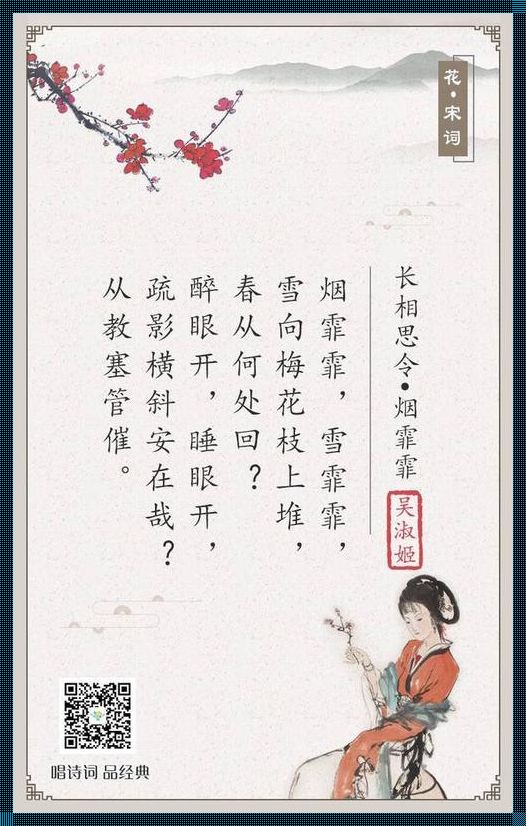 花·宋词
长相思令·烟霏霏
吴淑姬
烟霏霏，雪霏霏，
雪向梅花枝上堆，
春从何处回？
醉眼开，睡眼开，
疏影横斜安在哉？
从教塞管催。
唱诗词 品经典